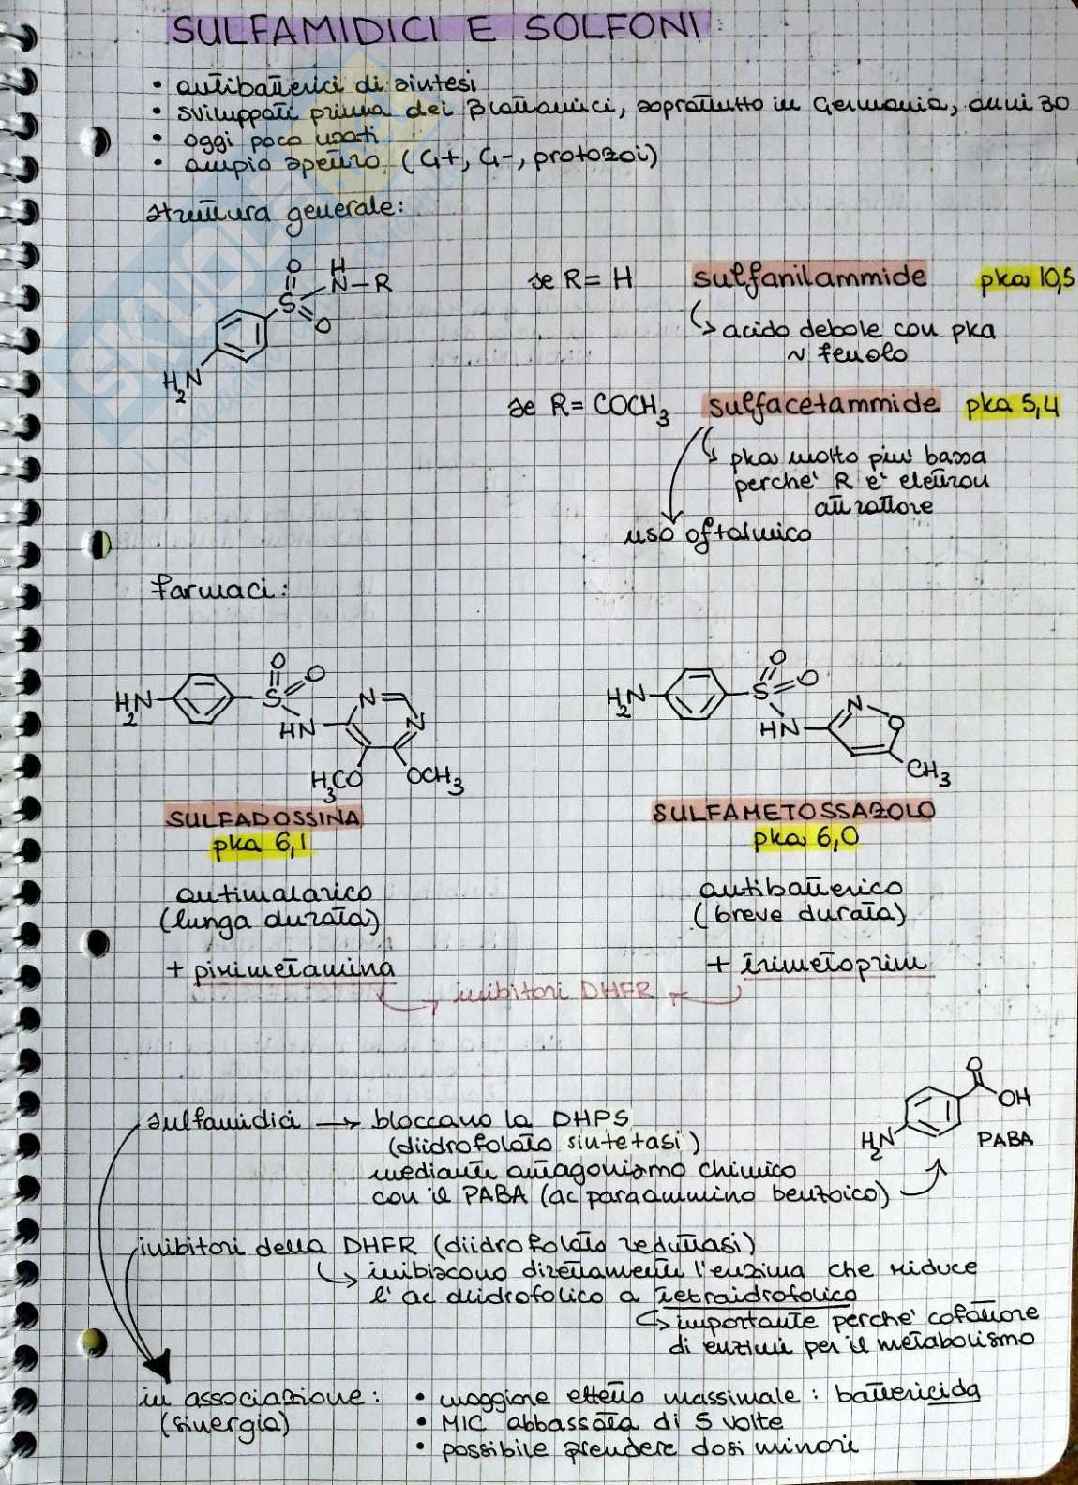 SULFAMIDICI E SOLFONI:
• antibatterici di sintesi
• sviluppati prima dei βlattamici, soprattutto in Germania, anni 30
• oggi poco usati
• ampio spettro (G+, G-, protozoi)
struttura generale:
O H
S N-R
O
H2N
se R= H sulfanilammide pka 10,5
↳ acido debole con pka
~ fenolo
se R= COCH3 sulfacetammide pka 5,4
↳ pka molto più bassa
perche' R e' elettron
attrattore
uso oftalmico
farmaci:
O O
H2N S HN N N
H3CO OCH3
O O
H2N S HN N O
CH3
SULFADOSSINA
pka 6,1
antimalarico
(lunga durata)
+ pirimetamina
SULFAMETOSSAZOLO
pka 6,0
antibatterico
(breve durata)
+ trimetoprim
inibitori DHFR
O
OH
H2N PABA
sulfamidici → bloccano la DHPS
(diidrofolato sintetasi)
mediante antagonismo chimico
con il PABA (ac paraammino benzoico)
inibitori della DHFR (diidrofolato reduttasi)
↳ inibiscono direttamente l'enzima che riduce
l'ac diidrofolico a tetraidrofolico
↳ importante perche' cofattore
di enzimi per il metabolismo
in associazione:
(sinergia)
• maggiore effetto massimale: battericida
• MIC abbassata di 5 volte
• possibile prendere dosi minori